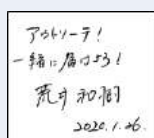 アウトリーチ!
一緒に届けよう!
荒井 和樹
2020.1.26.